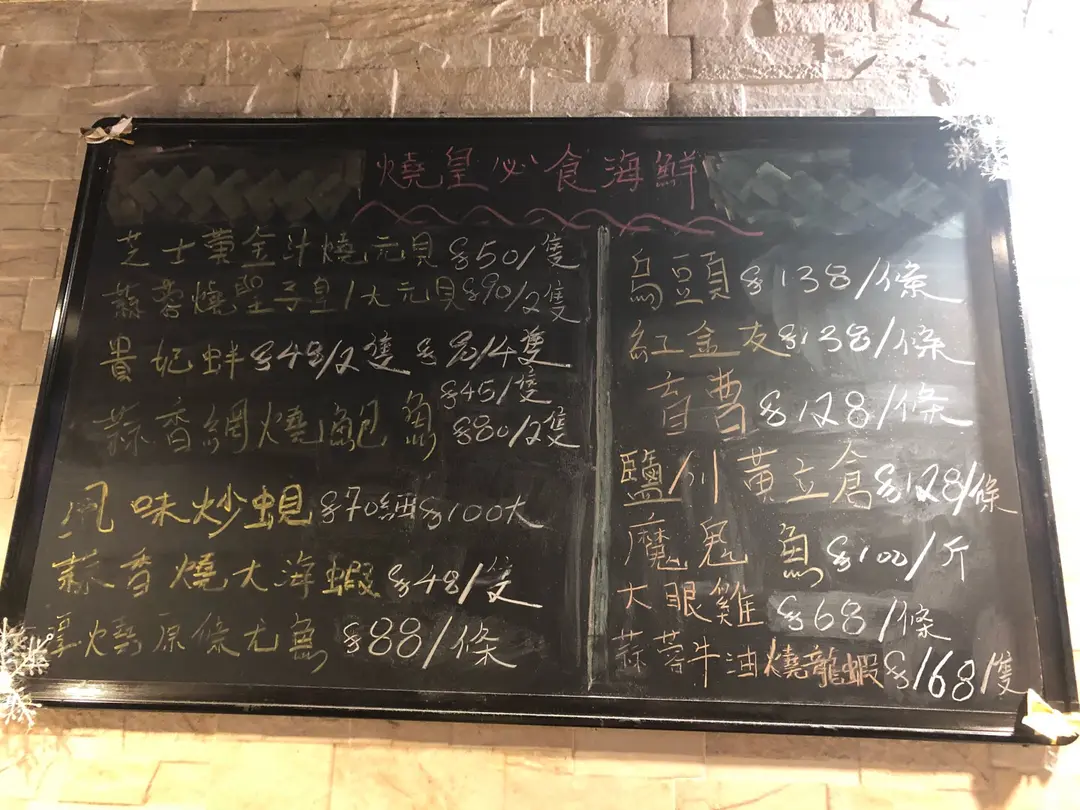 燒皇必食海鮮
芝士黃金汁燒元貝 $50/隻
蒜蓉燒聖子皇/大元貝 $90/2隻
貴妃蚌 $48/2隻 $ /4隻
$45/隻
蒜香網燒鮑魚 $80/2隻
風味炒蜆 $70細 $100大
蒜香燒大海蝦 $48/隻
燒原條尤魚 $88/條
烏豆頭 $138/條
紅金友 $138/條
$128/條
鹽/ 黃立倉 $128/條
魔鬼魚 $100/斤
大眼雞 $68/條
蒜蓉牛油燒龍蝦 $168/隻